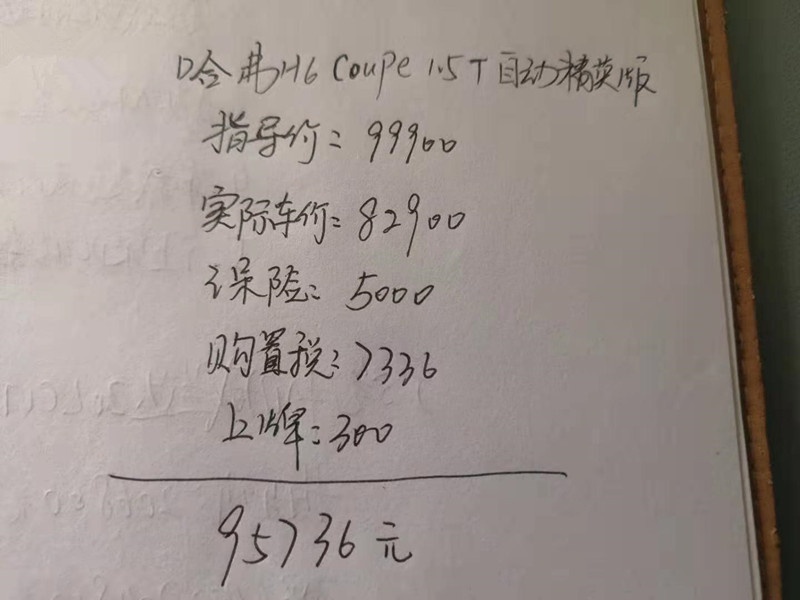 哈弗H6 Coupe 1.5T自动精英版
指导价：99900
实际车价：82900
保险：5000
购置税：7336
上牌：300
95736元